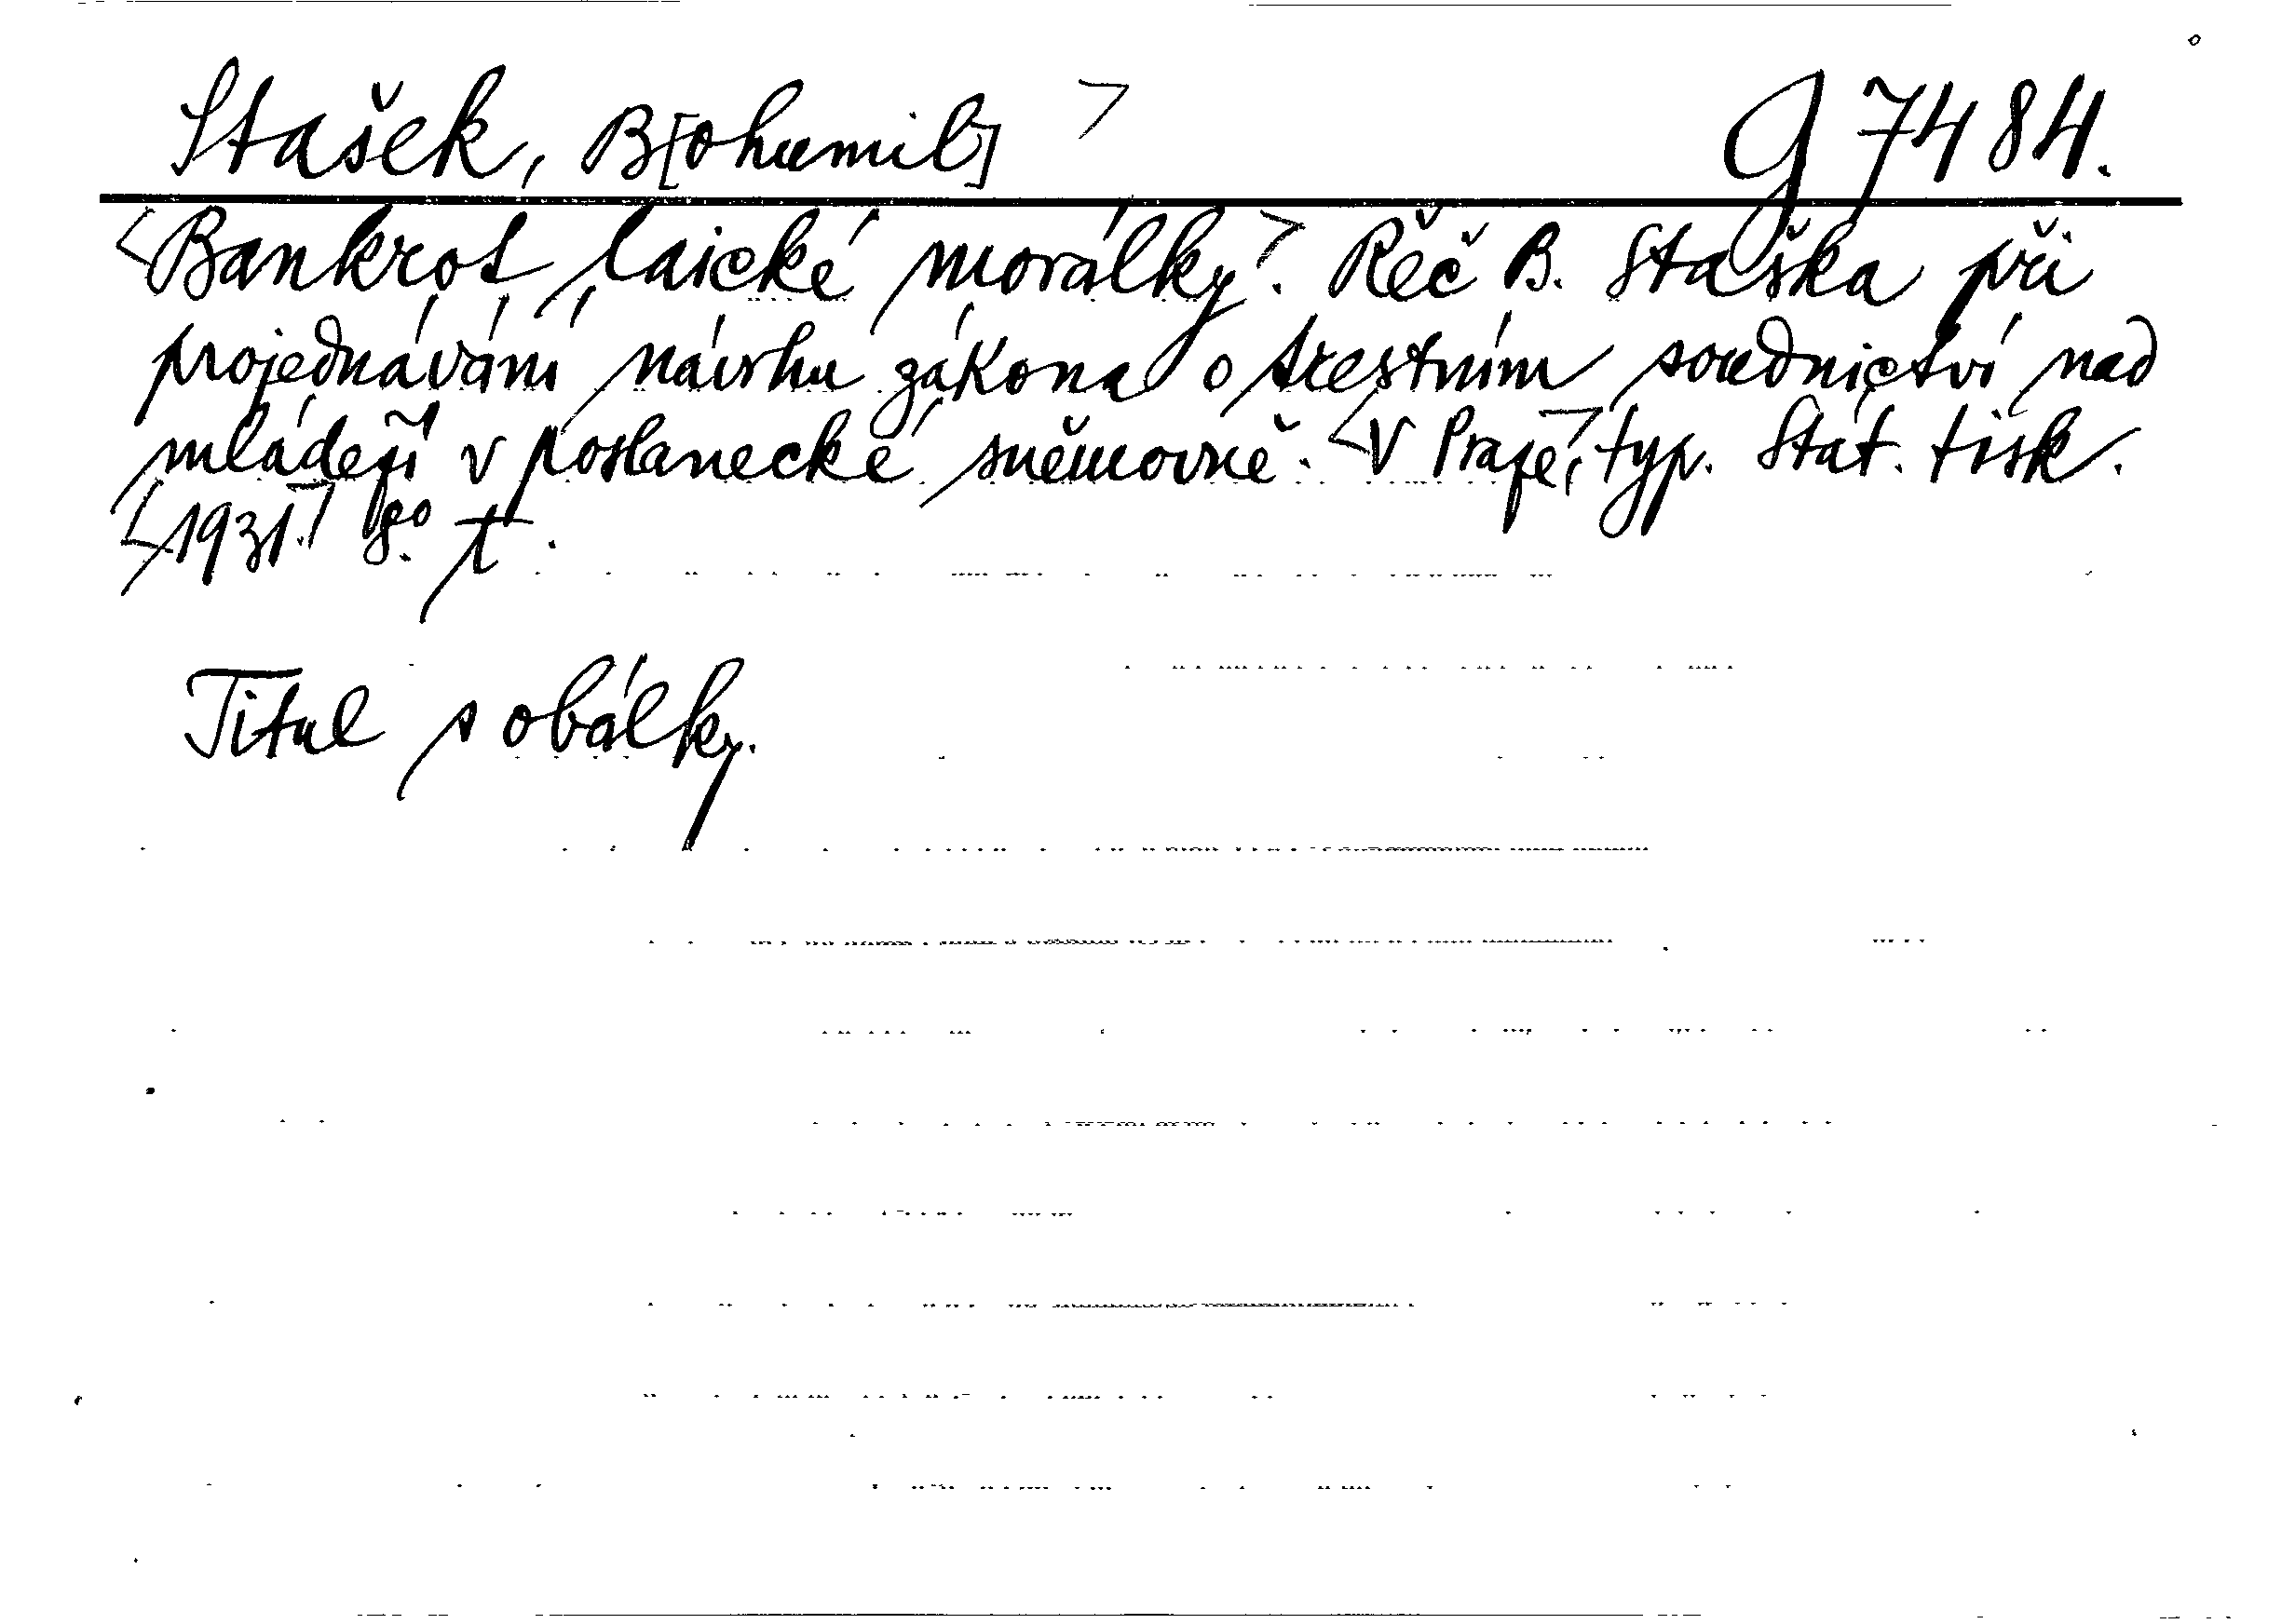 Stašek, B[ohumil] g 7484.
Bankrot laické morálky. Řeč B. Staška při
projednávání návrhu zákona o trestním soudnictví nad
mládeží v poslanecké sněmovně. V Praze, typ. Stát. tisk.
1931. 8º
Titul s obálky.